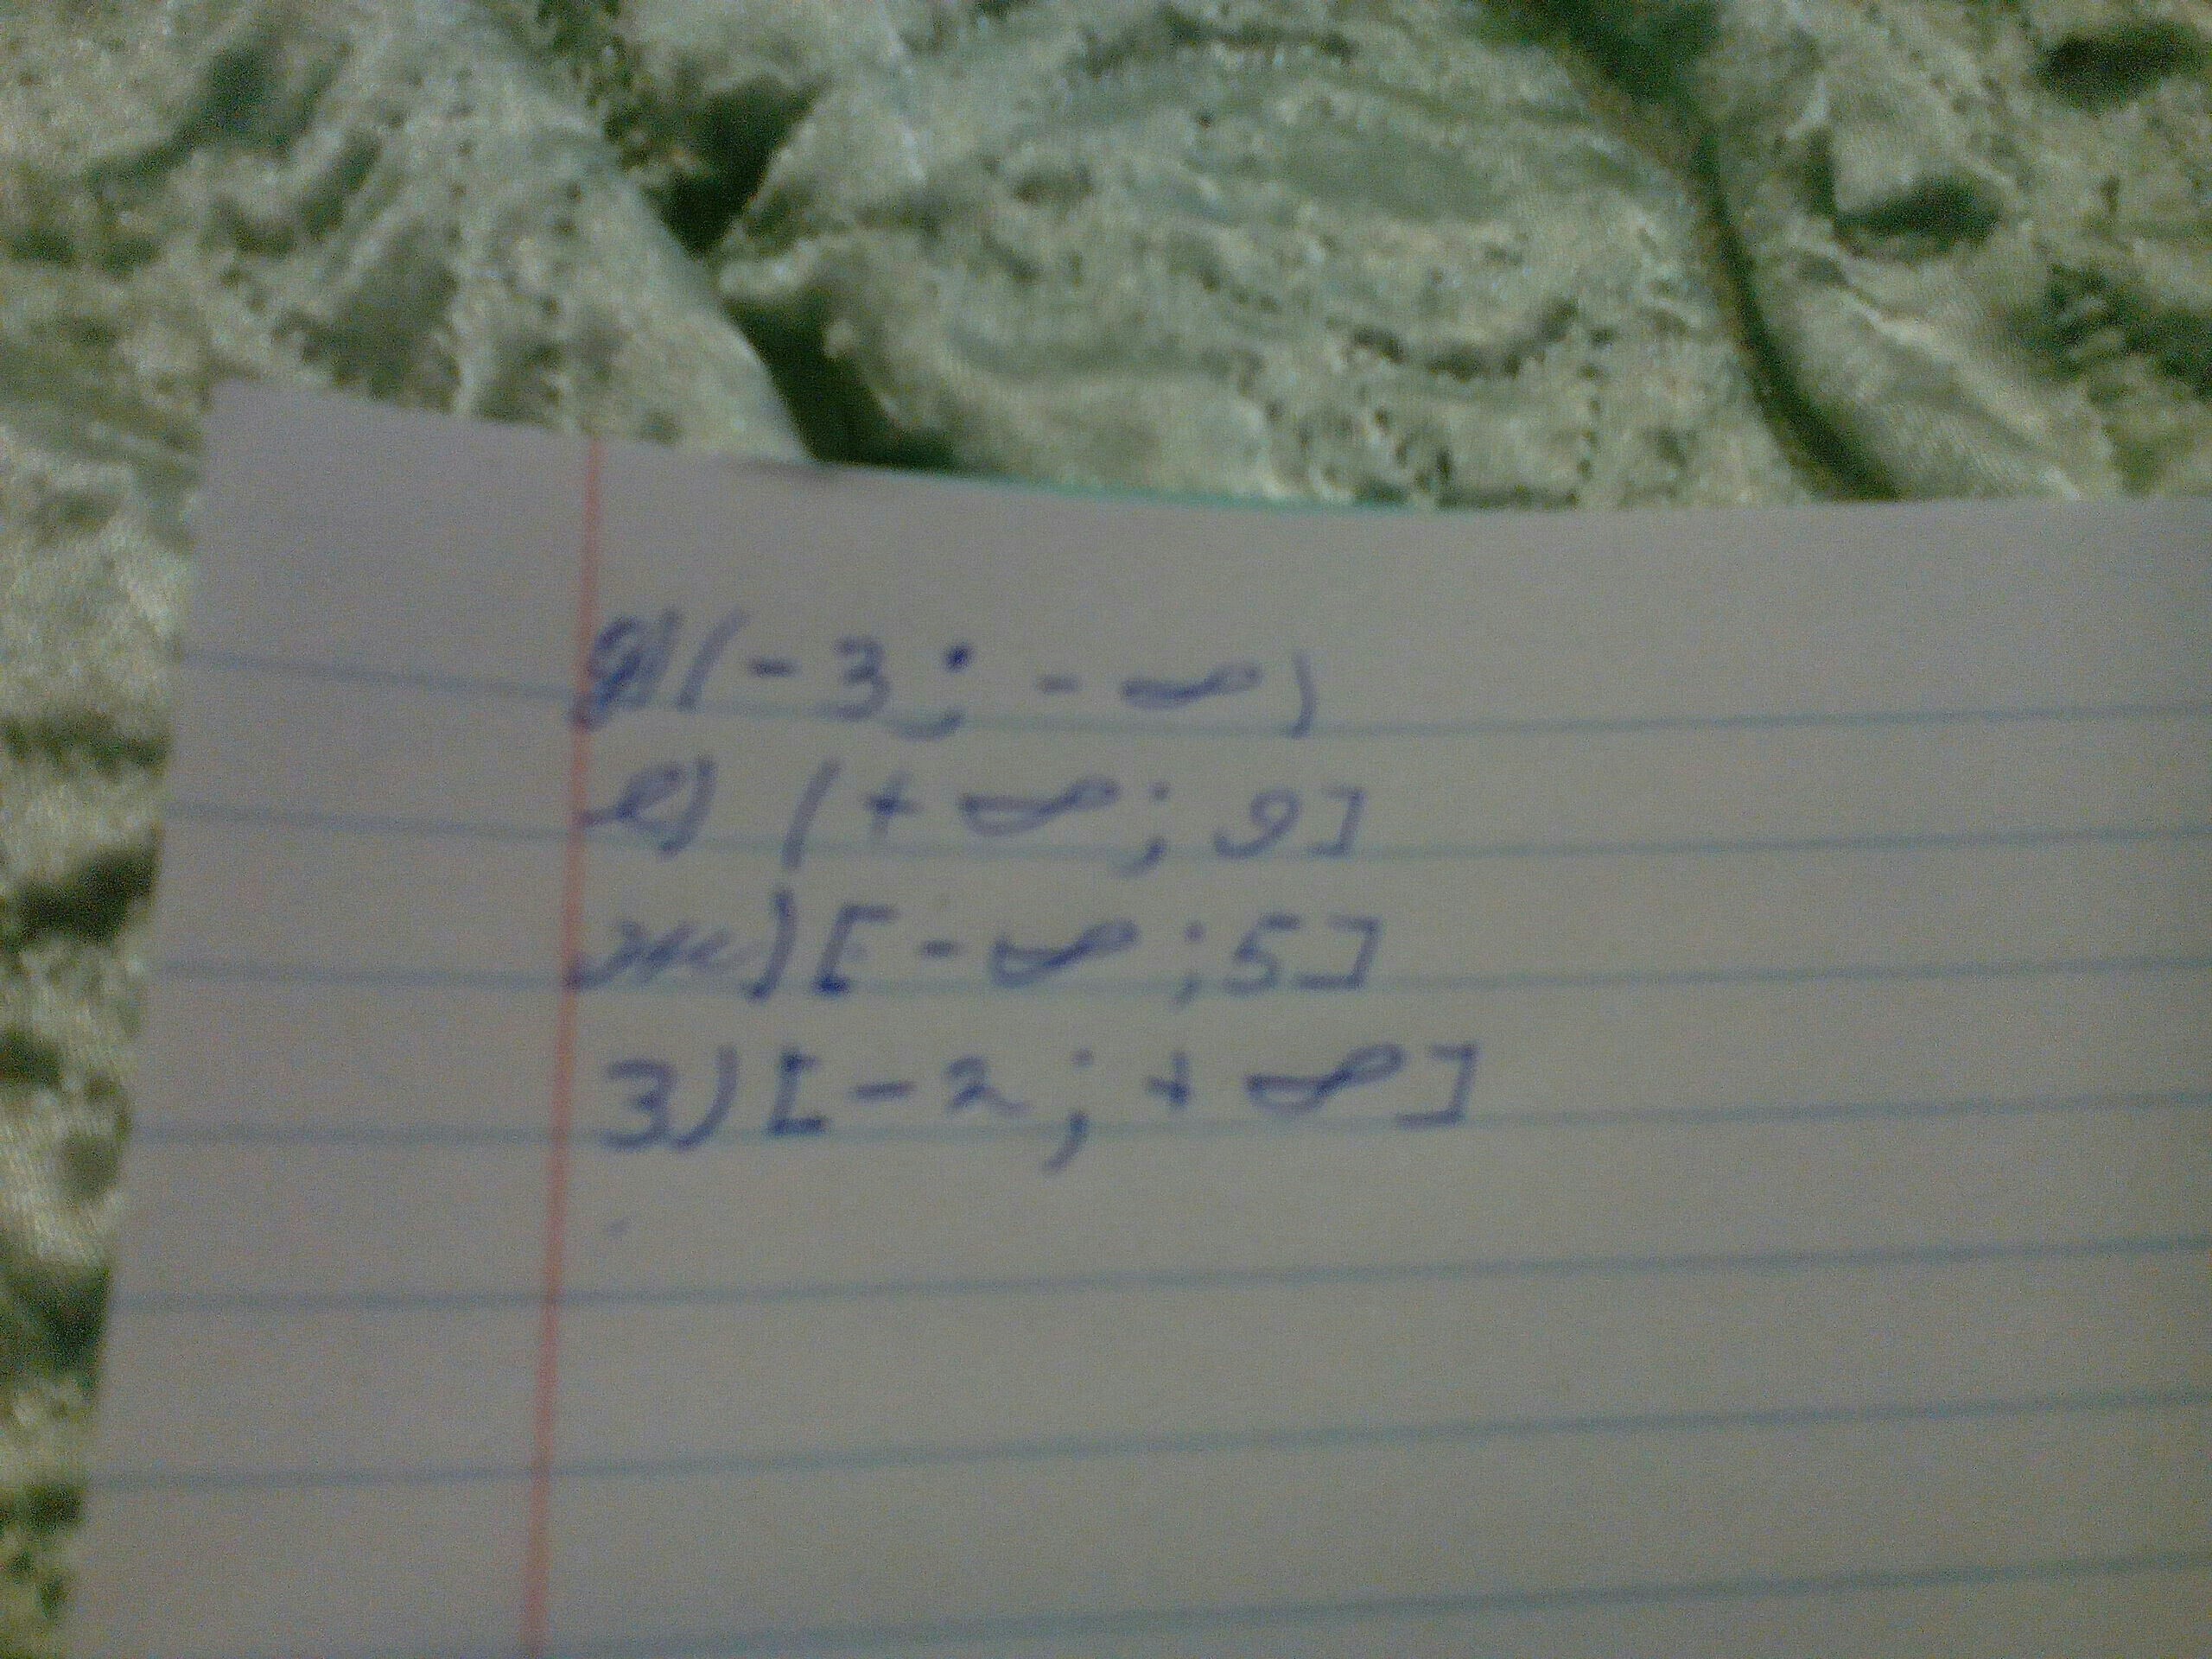 д) (-3; -∞)
е) (+∞; 9]
ж) [-∞; 5]
з) [-2; +∞]